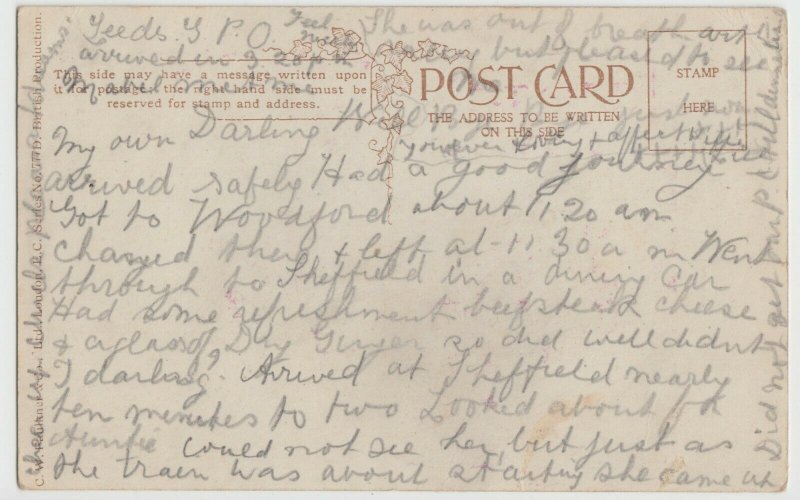 Leeds. G. P. O.
arrived in 3.20 pm
She was out of breath
but pleased to see
This side may have a message written upon
it for postage: the right hand side must be
reserved for stamp and address.
POST CARD
THE ADDRESS TO BE WRITTEN
ON THIS SIDE
STAMP
HERE
My own Darling
just now
arrived safely Had a good journey
your ever loving & affect Wife
Got to Woodford about 11 20 am
changed there & left at 11 30 a m Went
through to Sheffield in a dining Car
Had some refreshment beefsteak cheese
& a glass of Dry Ginger so did well didnt
I darling. Arrived at Sheffield nearly
ten minutes to two Looked about for
Auntie could not see her, but just as
the train was about starting she came up
Did not get our P
C. W. Faulkner & Co., Ltd., London, E.C. Series No. 77D. British Production.